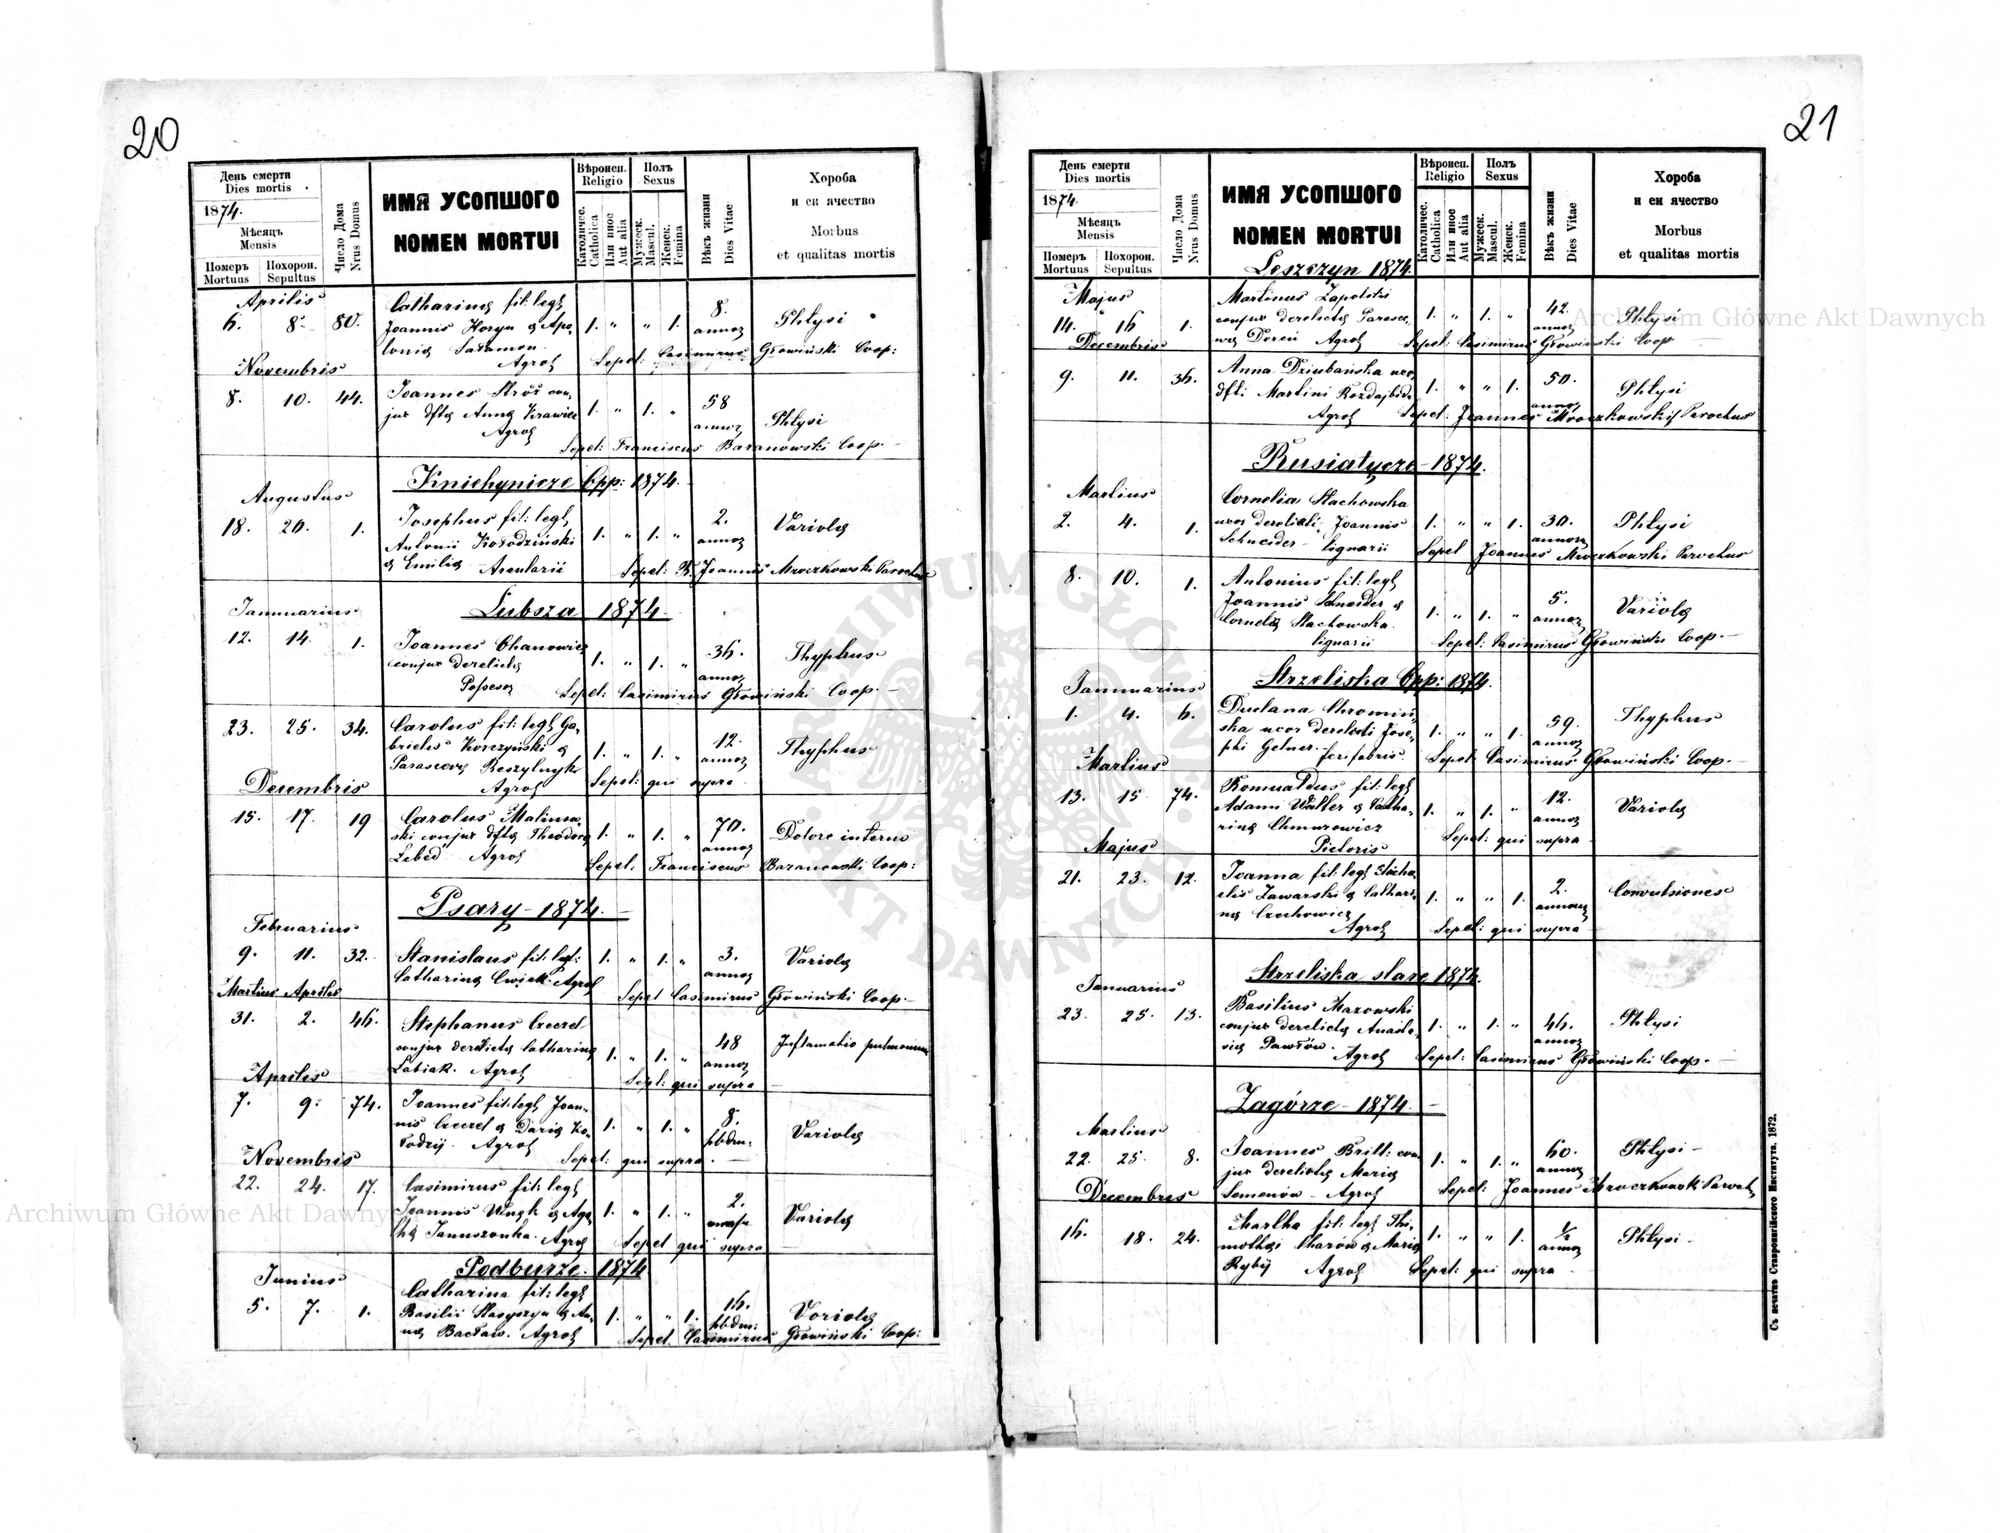 20
День смерти
Dies mortis
1874.
Мѣсяцъ
Mensis
Померъ
Mortuus
Похорон.
Sepultus
Число Дома
Nrus Domus
ИМЯ УСОПШОГО
NOMEN MORTUI
Вѣроисп.
Religio
Католичес.
Catholica
Или иное
Aut alia
Полъ
Sexus
Мужеск.
Mascul.
Женск.
Femina
Вѣкъ жизни
Dies Vitae
Хороба
и еи ячество
Morbus
et qualitas mortis
Aprilis
6. 8. 80. Catharina fil: leg: 1. " " 1. 8. annor Phtysi
Joannis Horyn & Apo-
lonia Salamon
Agrol Sepel: Casimirus Głowiński Coop:
Novembris
8. 10. 44. Joannes Stróż con- 1. " 1. " 58 annor Phtysi
jux dfta Anna Krawiec
Agrol
Sepel: Franciscus Baranowski Coop. —
Kniehynicze Opp: 1874.
Augustus
18. 20. 1. Josephus fil: leg: 1. " 1. " 2. annor Variola
Antonii Kołodziński
& Emilia Arentarii Sepel: R. Joannis Mroczkowski Parochus
Lubsza 1874.
Januuarius
12. 14. 1. Joannes Chanowicz 1. " 1. " 36. annor Thyphus
conjux derelicta
Possesor Sepel: Casimirus Głowiński Coop. —
23. 25. 34. Carolus fil: leg: Ga- 1. " 1. " 12. annor Thyphus
brielis Korczyński &
Parasceva Reszylnyk
Agrol Sepel: qui supra
Decembris
15. 17. 19 Carolus Malinow- 1. " 1. " 70. annor Dolore interno
ski conjux dfta Theodora
Lebed' Agrol Sepel. Franciscus Baranowski Coop:
Psary — 1874. —
Februarius
9. 11. 32. Stanislaus fil: leg: 1. " 1. " 3. annor Variola
Catharina Cwiek. Agrol
Sepel Casimirus Głowiński Coop. —
Martius Aprilis
31. 2. 46. Stephanus Czerel 1. " 1. " 48 annor Inflamatio pulmonum
conjux derelicta Catharina
Labiak. Agrol Sepel: qui supra —
Aprilis
7. 9. 74. Joannes fil: leg: Joan- 1. " 1. " 8. hbdm: Variola
nis Czerel & Daria Ko-
łodzij. Agrol
Sepel: qui supra —
Novembris
22. 24. 17. Casimirus fil: leg: 1. " 1. " 2. Variola
Joannis & Aga-
tha Januszonka. Agrol Sepel qui supra —
Podburze. 1874
Junius
5. 7. 1. Catharina fil: leg: 1. " " 1. 16. hbdm: Variola
Basilii Stasyszyn & An-
na Bacław. Agrol Sepel. Casimirus Głowiński Coop:
21
День смерти
Dies mortis
1874.
Мѣсяцъ
Mensis
Померъ
Mortuus
Похорон.
Sepultus
Число Дома
Nrus Domus
ИМЯ УСОПШОГО
NOMEN MORTUI
Вѣроисп.
Religio
Католичес.
Catholica
Или иное
Aut alia
Полъ
Sexus
Мужеск.
Mascul.
Женск.
Femina
Вѣкъ жизни
Dies Vitae
Хороба
и еи ячество
Morbus
et qualitas mortis
Leszczyn 1874.
Majus
14. 16 1. Martinus Zapolski 1. " 1. " 42. annor Phtysi
conjux derelicta Parasce-
wa Doreń Agrol Sepel: Casimirus Głowiński Coop —
Decembris
9. 11. 36. Anna Dziubańska uxor 1. " " 1. 50. annor Phtysi
dfti Martini Rozdajbida
Agrol Sepel: Joannes Mroczkowskij Parochus
Rusiatycze — 1874.
Martius
2. 4. 1. Cornelia Stachowska 1. " " 1. 30. annor Phtysi
uxor derelicti Joannis
Schneider — lignarii Sepel Joannes Mroczkowski Parochus
8. 10. 1. Antonius fil: leg: 1. " 1. " 5. annor Variola
Joannis Schneider &
Cornelia Stachowska.
lignarii Sepel: Casimirus Głowiński Coop. —
Strzeliska Opp: 1874.
Januuarius
1. 4. 6. Chromiń- 1. " " 1. 59. annor Thyphus
ska uxor derelicti Jose-
phi Gelner. — ferifabris. Sepel: Casimirus Głowiński Coop. —
Martius
13. 15 74. Romualdus fil: leg: 1. " 1. " 12. annor Variola
Adami Walter & Catha-
rina Chmurowicz
Pictoris Sepel: qui supra —
Majus
21. 23. 12. Joanna fil: leg: Micha- 1. " " 1. 2. annor Convulsiones
elis Zawarski & Cathari-
na Czechowicz
Agrol Sepel: qui supra —
Strzeliska stare 1874.
Januarius
23. 25. 13. Basilius Mazowski 1. " 1. " 46. annor Phtysi
conjux derelicta Anasta-
sia Pawłów. Agrol Sepel: Casimirus Głowiński Coop. —
Zagórze — 1874. —
Martius
22. 25. 8. Joannes Britt: con- 1. " 1. " 60. annor Phtysi —
jux derelicta Maria
Semenów — Agrol Sepel: Joannes Mroczkowski Paroch
Decembris
16. 18. 24. Martha fil: leg: Thi- 1. " " 1. 1/2 annor Phtysi —
mothei Charów & Maria
Rybij Agrol Sepel: qui supra —
Съ печатнѣ Ставропигійского Института. 1872.
Archiwum Główne Akt Dawnych
Archiwum Główne Akt Dawnych
ARCHIWUM GŁÓWNE AKT DAWNYCH